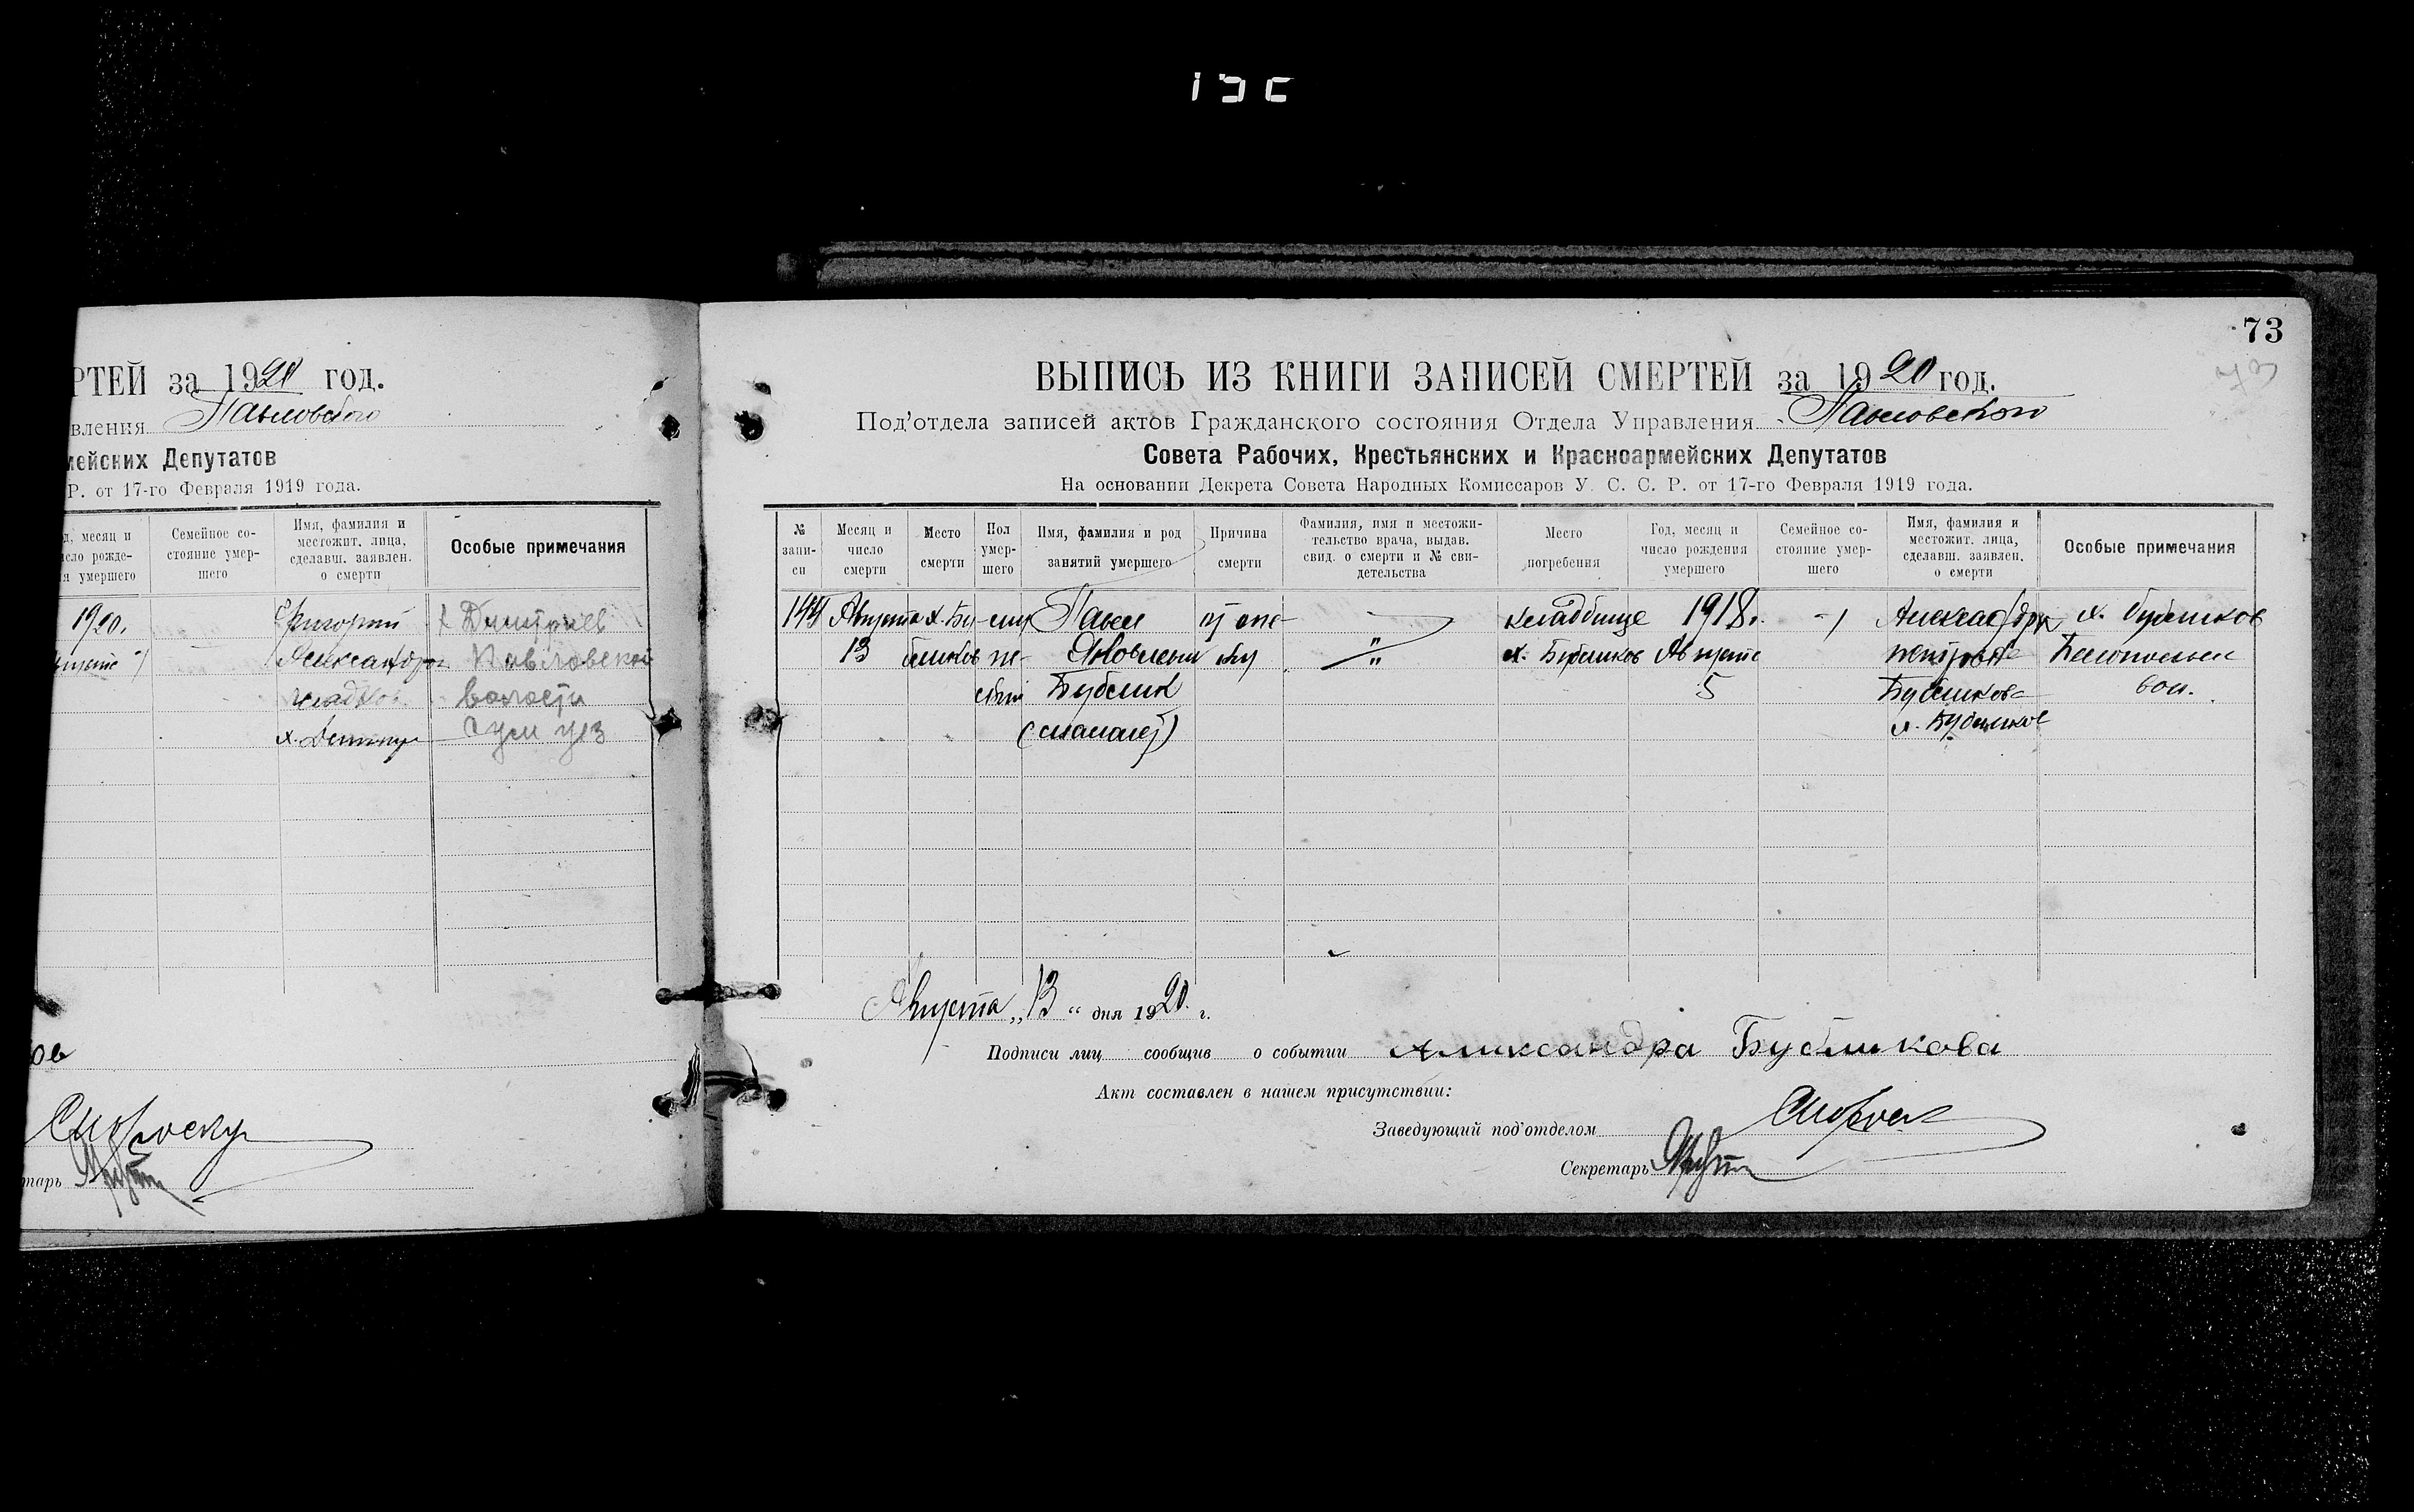 РТЕЙ за 1920 год.
вления Павловского
мейских Депутатов
Р. от 17-го Февраля 1919 года.
д, месяц и
сло рожде-
я умершего
Семейное со-
стояние умер-
шего
Имя, фамилия и
местожит. лица,
сделавш. заявлен.
о смерти
Особые примечания
1920.
Григорий
Александров
х. Дмитриев
Павловской
волости
Сум уез
ов
тарь
73
73
ВЫПИСЬ ИЗ КНИГИ ЗАПИСЕЙ СМЕРТЕЙ за 1920 год.
Под'отдела записей актов Гражданского состояния Отдела Управления Павловского
Совета Рабочих, Крестьянских и Красноармейских Депутатов
На основании Декрета Совета Народных Комиссаров У. С. С. Р. от 17-го Февраля 1919 года.
№
запи-
си
Месяц и
число
смерти
Место
смерти
Пол
умер-
шего
Имя, фамилия и род
занятий умершего
Причина
смерти
Фамилия, имя и местожи-
тельство врача, выдав.
свид. о смерти и № сви-
детельства
Место
погребения
Год, месяц и
число рождения
умершего
Семейное со-
стояние умер-
шего
Имя, фамилия и
местожит. лица,
сделавш. заявлен.
о смерти
Особые примечания
144
Августа
13
х. Бу-
бликов
Павел
Яковлевич
Бублик
(малолет)
кладбище
х. Бубликов
1918 г.
Августа
5
Александра
Петровна
Бубликова
х. Бубликов
х. Бубликов
Белопольск
вол.
Августа „13“ дня 1920 г.
Подписи лиц сообщив о событии Александра Бубликова
Акт составлен в нашем присутствии:
Заведующий под'отделом
Секретарь